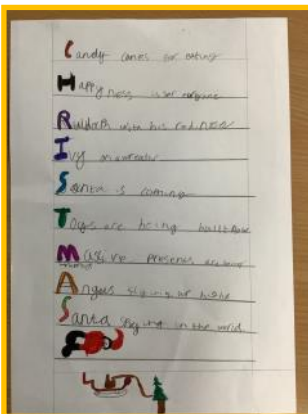 Candy canes for eating
Happyness is for everyone
Ruldolth with his red nose
Ivy on a wreath
Santa is coming
Toys are being built
Masive presents are being
Angels flying at night
Santa flying in the world